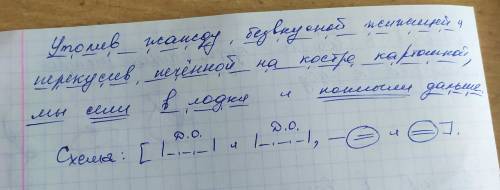 Утолив жажду, безвкусной жижицей и
перекусив печённой на костре картошкой,
мы сели в лодки и поплыли дальше.
Д.О. Д.О.
Схема: [ |_._._| и |_._._|, — (=) и (=) ].